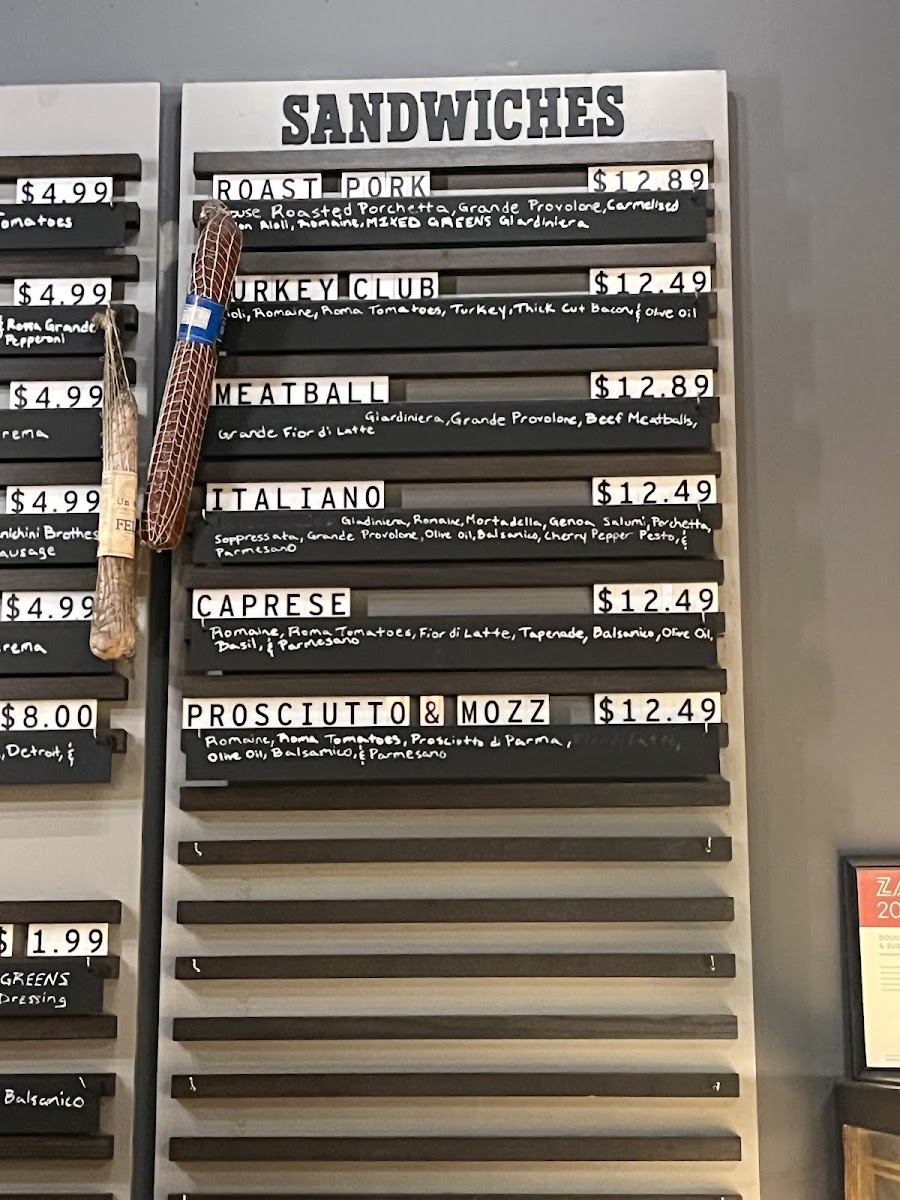 SANDWICHES
ROAST PORK $12.89
Roasted Porchetta, Grande Provolone, Carmelized
Aioli, Romaine, MIXED GREENS Giardiniera
TURKEY CLUB $12.49
Romaine, Roma Tomatoes, Turkey, Thick Cut Bacon & Olive Oil
MEATBALL $12.89
Giardiniera, Grande Provolone, Beef Meatballs,
Grande Fior di Latte
ITALIANO $12.49
Giadiniera, Romaine, Mortadella, Genoa Salumi, Porchetta,
Soppressata, Grande Provolone, Olive Oil, Balsanico, Cherry Pepper Pesto, &
Parmesano
CAPRESE $12.49
Romaine, Roma Tomatoes, Fior di Latte, Tapenade, Balsanico, Olive Oil,
Basil, & Parmesano
PROSCIUTTO & MOZZ $12.49
Romaine, Roma Tomatoes, Prosciutto di Parma, Fior di Latte,
Olive Oil, Balsamico, & Parmesano
$4.99
Tomatoes
$4.99
& Rossa Grande
Pepperoni
$4.99
$4.99
Sausage
$4.99
$8.00
, Detroit, &
$ 1.99
GREENS
Dressing
Balsanico
Un
FEL
ZA
20
DOUG
& SUB